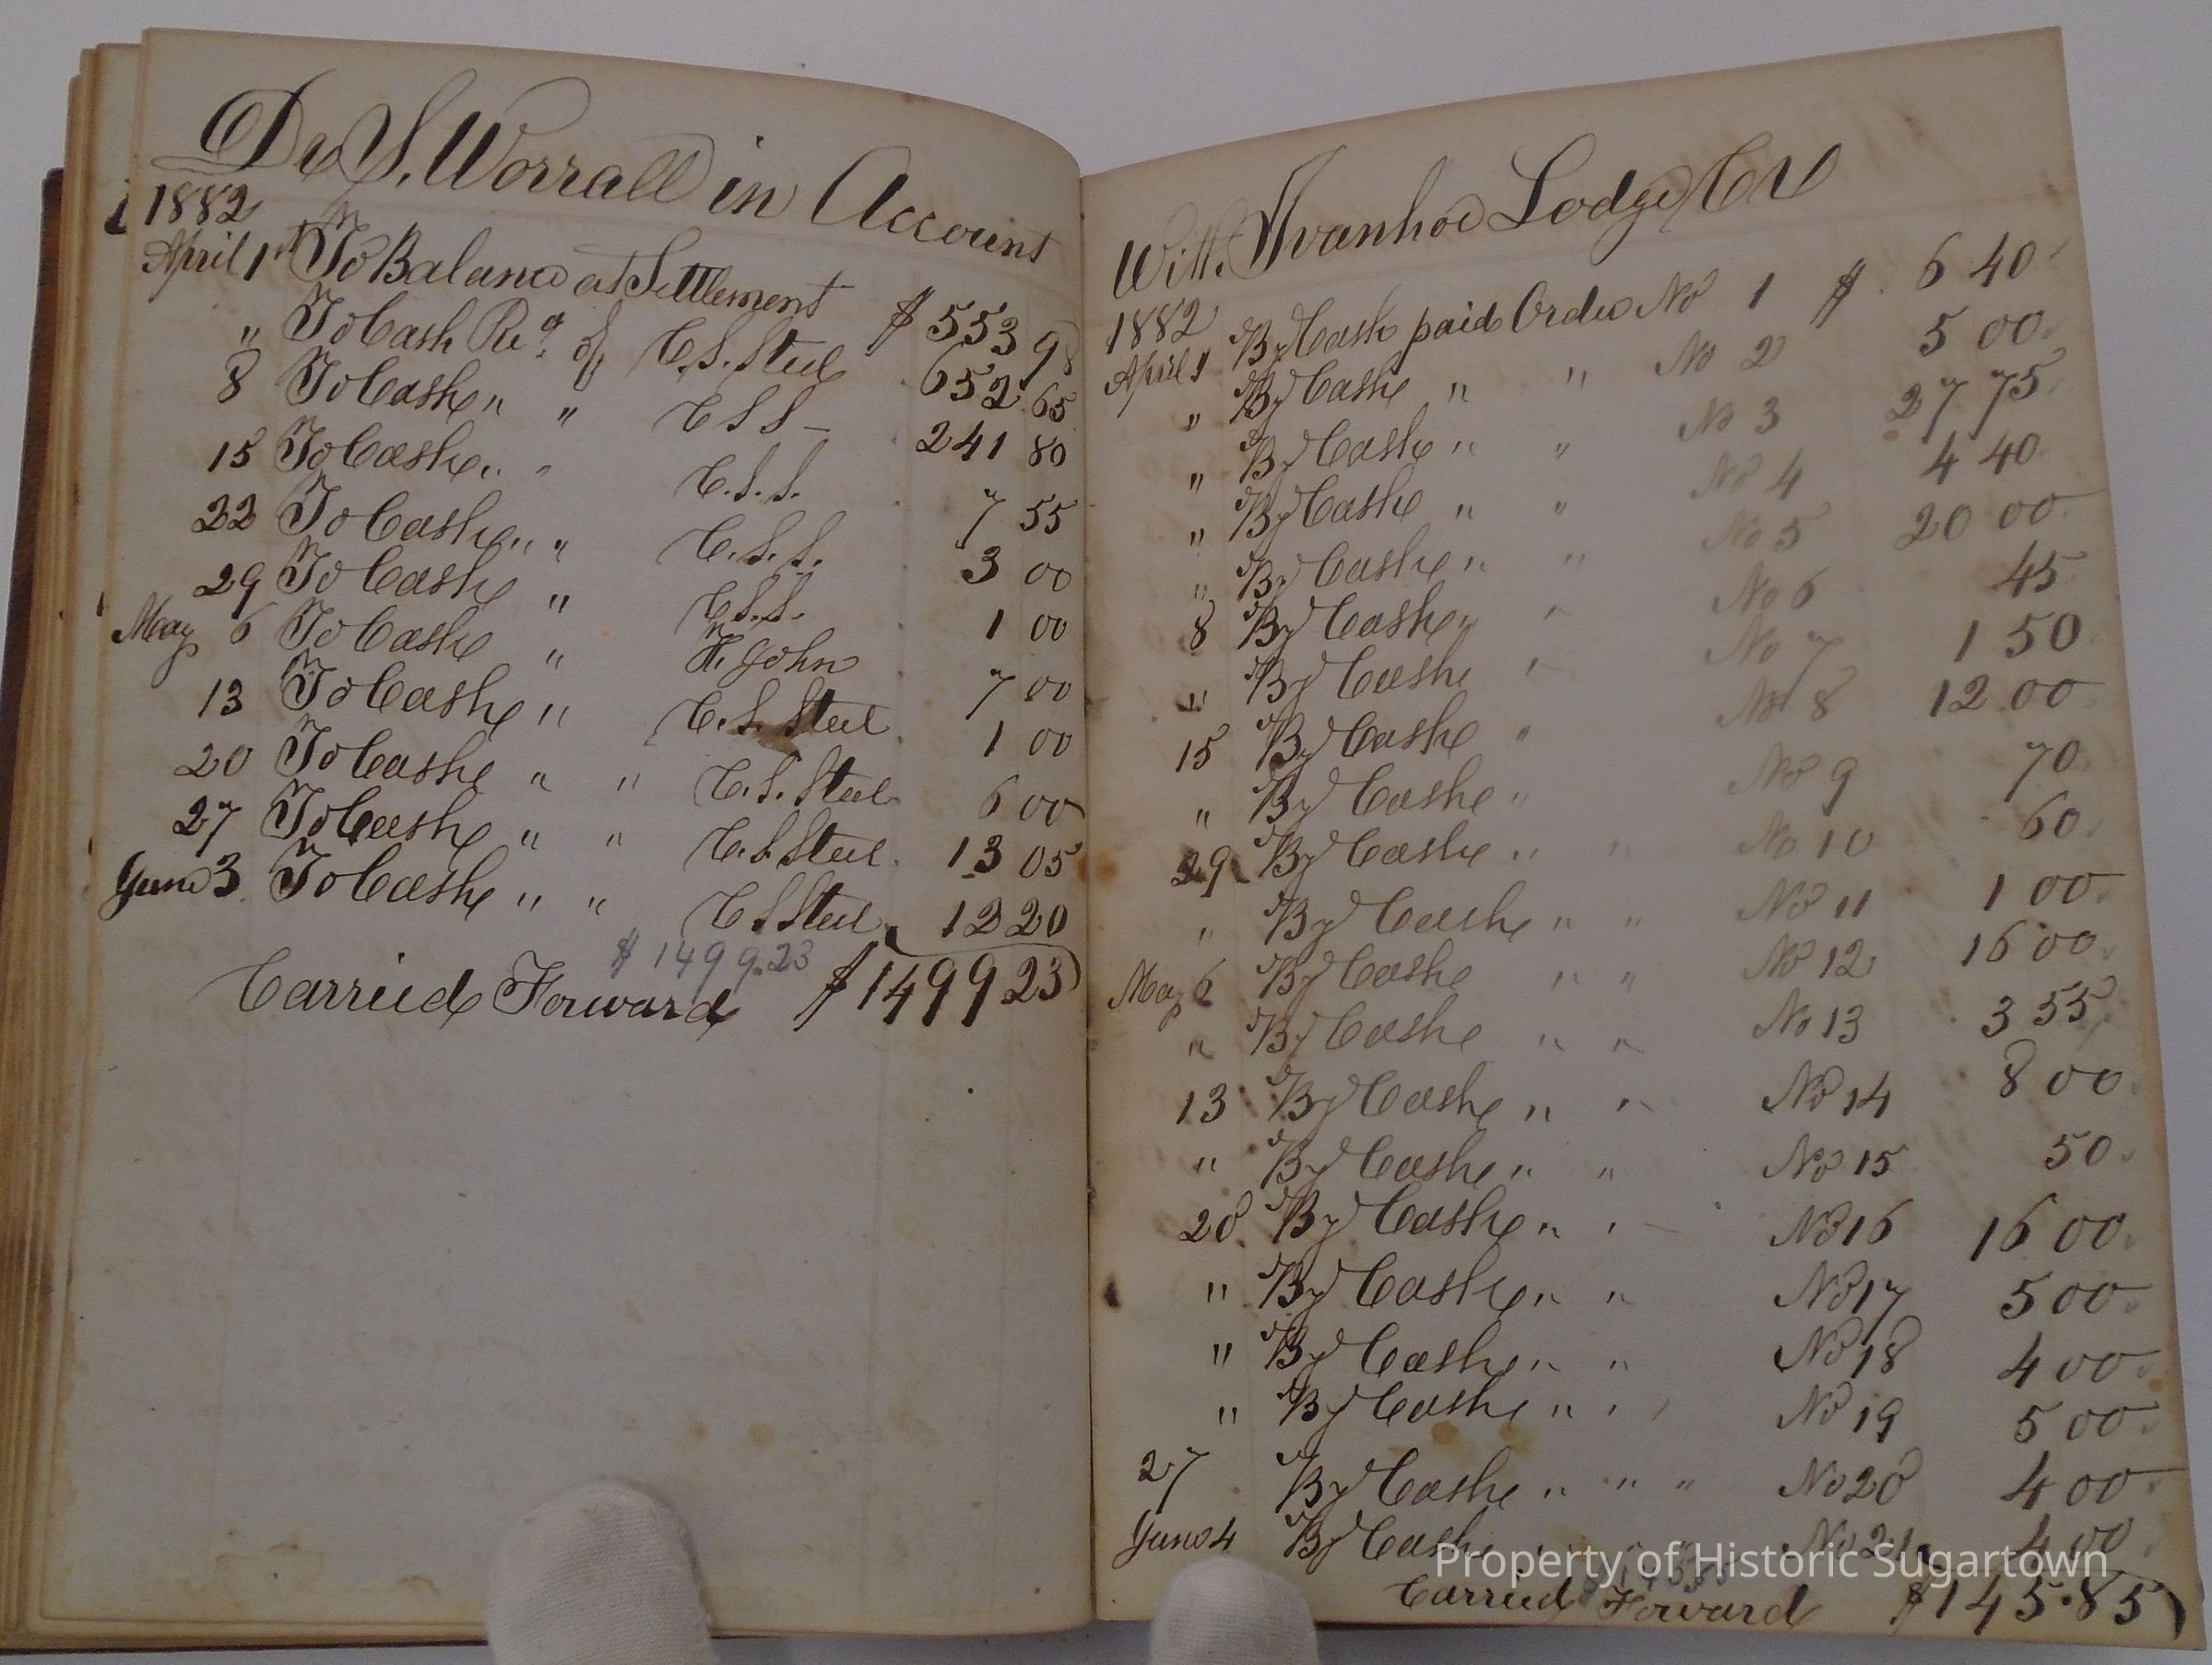 Dr S. Worrall in Account
1882
April 1st To Balance at Settlement $ 553 98
" To Cash Rec'd of C. S. Steel 652 65
8 To Cash " " C S S 241 80
15 To Cash " " C. S. S. 7 55
22 To Cash " " C. S. S. 3 00
29 To Cash " C. S. S. 1 00
May 6 To Cash " H. John 7 00
13 To Cash " C. S. Steel 1 00
20 To Cash " " C. S. Steel 6 00
27 To Cash " " C. S. Steel 13 05
June 3 To Cash " " C S Steel 12 20
$ 1499.23
Carried Forward $1499 23
With Ivanhoe Lodge Cr
1882
April 1 By Cash paid Order No 1 $ 6 40
" By Cash " " No 2 5 00
" By Cash " " No 3 27 75
" By Cash " " No 4 4 40
" By Cash " " No 5 20 00
8 By Cash " No 6 45
" By Cash " No 7 1 50
15 By Cash " No 8 12 00
" By Cash " No 9 70
29 By Cash " " No 10 60
" By Cash " " No 11 1 00
May 6 By Cash " " No 12 16 00
" By Cash " " No 13 3 55
13 By Cash " " No 14 8 00
" By Cash " " No 15 50
20 By Cash " " No 16 16 00
" By Cash " " No 17 5 00
" By Cash " " No 18 4 00
" By Cash " " No 19 5 00
27 By Cash " " " No 20 4 00
June 4 By Cash " " " No 21 4 00
Carried Forward $145.85
Property of Historic Sugartown